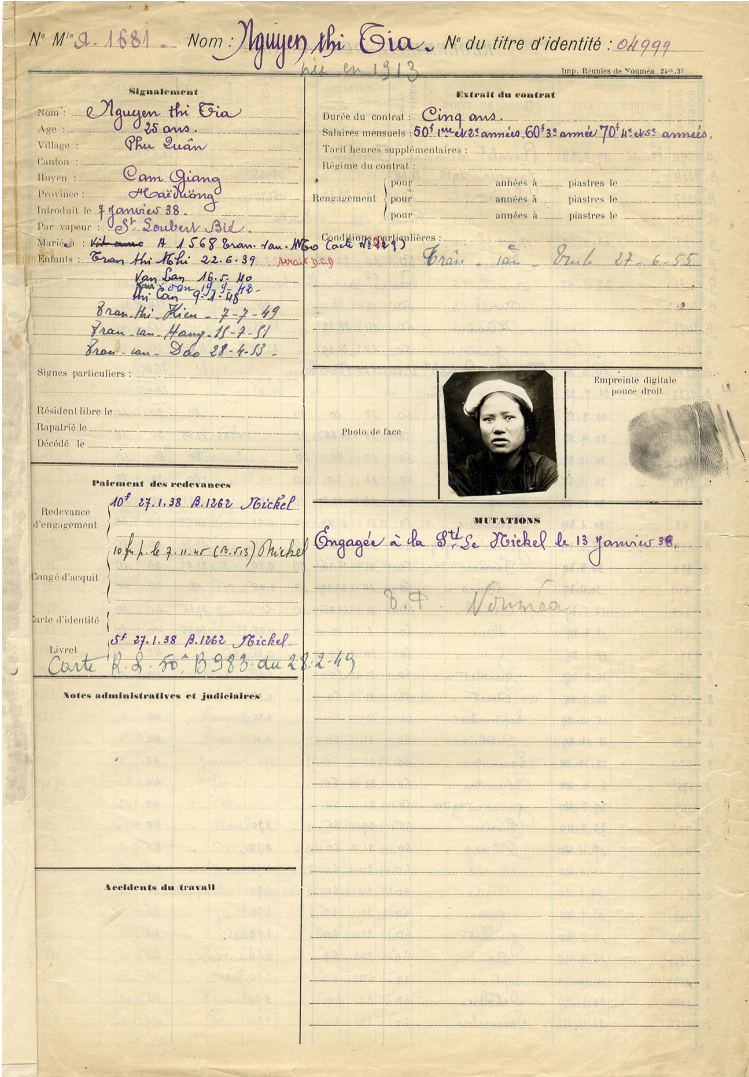 No Mle A. 1681. Nom : Nguyen thi Tia. No du titre d'identité : 04999
née en 1913
Imp. Réunies de Nouméa
Signalement
Nom : Nguyen thi Tia
Age : 25 ans.
Village : Phu Quân
Canton :
Huyen : Cam Giang
Province : Haïduöng
Introduit le 7 Janvier 38.
Par vapeur : St Loubert Bié.
Mariée à : A 1568 Tran. van. Mo
Enfants : Tran thi Nhi 22.6.39
Van Lan 16.5.40
thi Can 9.1.46
Tran thi Hien - 7-7-49
Tran - van - Hang - 15-7-51
Tran - van - Dao 28-4-53 -
Signes particuliers :
Résident libre le
Rapatrié le
Décédé le
Paiement des redevances
Redevance d'engagement
10f 27.1.38 B.1262 Nickel
10 fr. p. le 7.11.45 (B.513) Nickel
Congé d'acquit
Carte d'identité
Livret
5f 27.1.38 B.1262 Nickel.
Carte R.L. 50f B 983 du 28-2-49
Notes administratives et judiciaires
Accidents du travail
Extrait du contrat
Durée du contrat : Cinq ans.
Salaires mensuels : 50f 1ère et 2e années 60f 3e année 70f 4e et 5e années.
Tarif heures supplémentaires :
Régime du contrat :
Rengagement
pour années à piastres le
pour années à piastres le
pour années à piastres le
Conditions particulières :
Trân - van - Vinh 27-6-55
Photo de face
Empreinte digitale
pouce droit
MUTATIONS
Engagée à la Sté Le Nickel le 13 Janvier 38.
Nouméa